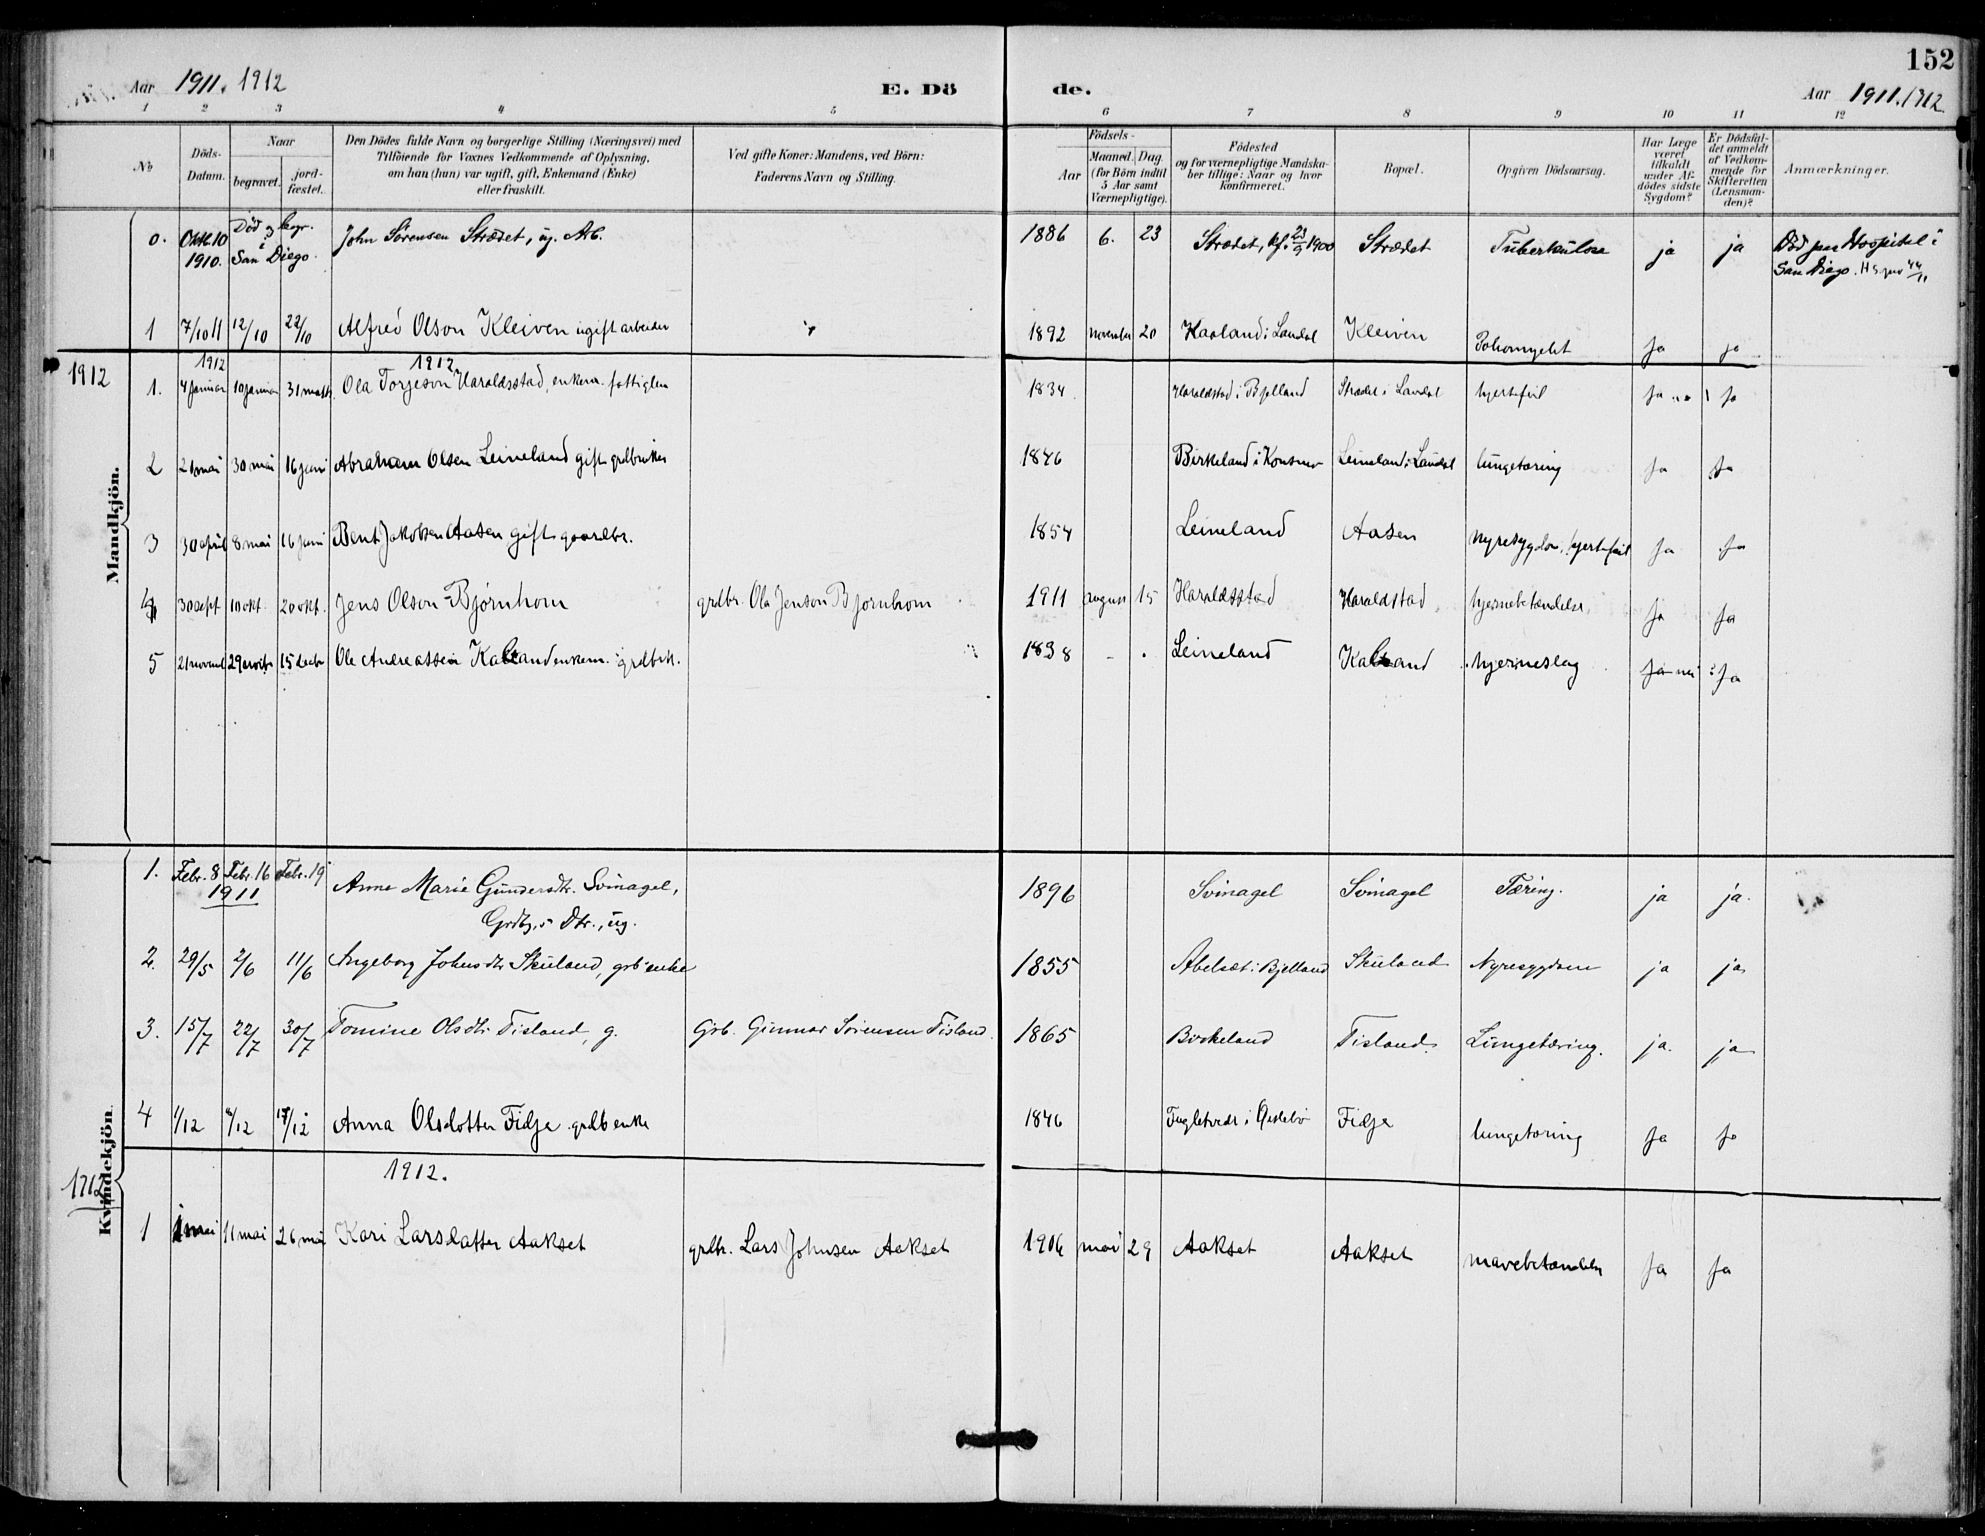 152
Aar 1911. 1912 E. Dö de. Aar 1911. 1912
1 2 3 4 5 6 7 8 9 10 11 12
No
Döds-Datum.
Naar
begravet.
jord-fæstet.
Den Dödes fulde Navn og borgerlige Stilling (Næringsvei) med
Tilföiende for Voxnes Vedkommende af Oplysning,
om han (hun) var ugift, gift, Enkemand (Enke)
eller fraskilt.
Ved gifte Koner: Mandens, ved Börn:
Faderens Navn og Stilling.
Födsels-
Aar
Maaned. Dag.
(for Börn indtil
5 Aar samt
Værnepligtige).
Födested
og for værnepligtige Mandska-
ber tillige: Naar og hvor
konfirmeret.
Bopæl.
Opgiven Dödsaarsag.
Har Læge
været
tilkaldt
under Af-
dödes sidste
Sygdom?
Er Dödsfal-
det anmeldt
af Vedkom-
mende for
Skifteretten
(Lensman-
den)?
Anmærkninger.
Mandkjön.
0. Okt. 10 1910. Död og begr. i San Diego. John Sörensen Strædet, ug. Arb. 1886 6. 23 Strædet, kf. 23/9 1900 Strædet Tuberkulose ja ja Död paa Hospital i San Diego.
1 7/10 11 12/10 22/10 Alfred Olson Kleiven ugift arbeider 1892 november 20 Haaland i Laudal Kleiven ja ja
1912 1912 1912
1. 4 januar 10 januar 31 mars Ola Torjeson Haraldsstad, enkem. fattiglem 1834 Haraldstad i Bjelland Strædet i Laudal hjertefeil ja ja
2 21 mai 30 mai 16 juni Abraham Olsen Leineland gift grdbruker 1846 Birkeland i Konsmo Leineland i Laudal lungetæring ja ja
3 30 april 8 mai 16 juni Bent Jakobsen Aasen gift gaardbr. 1854 Leineland Aasen nyresygdom, hjertefeil ja ja
4 30 sept 10 okt. 20 okt. Jens Olson Bjørnhom grdbr. Ola Jenson Bjørnhom 1911 august 15 Haraldsstad Haraldstad hjernebetændelse ja ja
5 21 novembr 29 novbr 15 decbr Ole Andreassen Kalland enkem. grdbrk. 1838 - . Leineland Kalland hjerneslag ja nei ja
Kvindekjön.
1. Febr. 8 Febr. 16 Febr. 19 1911 Anne Marie Gundersdtr. Svinagel, Grdbr.s Dtr., ug. 1896 Svinagel Svinagel Tæring. ja ja.
2. 29/5 2/6 11/6 Angeborg Johnsdtr Skuland, grb enke 1855 Abelsæt i Bjelland Skuland Nyresygdom ja ja
3. 15/7 22/7 30/7 Tomine Olsdtr. Tisland, g. Grb. Gunnar Sörensen Tisland. 1865 Birkeland Tisland. Lungetæring. ja. ja
4 1/12 8/12 17/12 Anna Olsdotter Fidje grdb enke 1846 Fugletvedt i Øislebø Fidje lungetæring ja ja
1912 1912.
1 1 mai 11 mai 26 mai Kari Larsdatter Aakset grdbr. Lars Johnsen Aakset 1906 mai 29 Aakset Aakset mavebetændelse ja ja